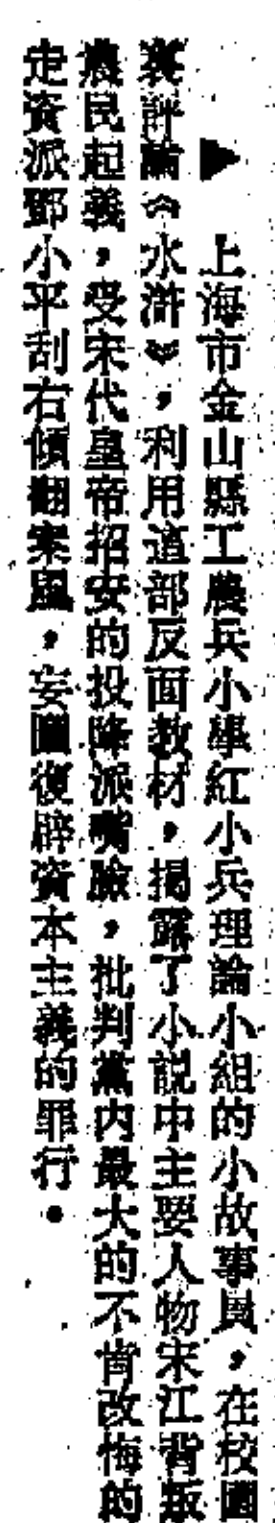 ▶上海市金山縣工農兵小學紅小兵理論小組的小故事員，在校園
裏評論《水滸》，利用這部反面教材，揭露了小說中主要人物宋江背叛
農民起義，受宋代皇帝招安的投降派嘴臉，批判黨内最大的不肯改悔的
走資派鄧小平刮右傾翻案風，妄圖復辟資本主義的罪行。